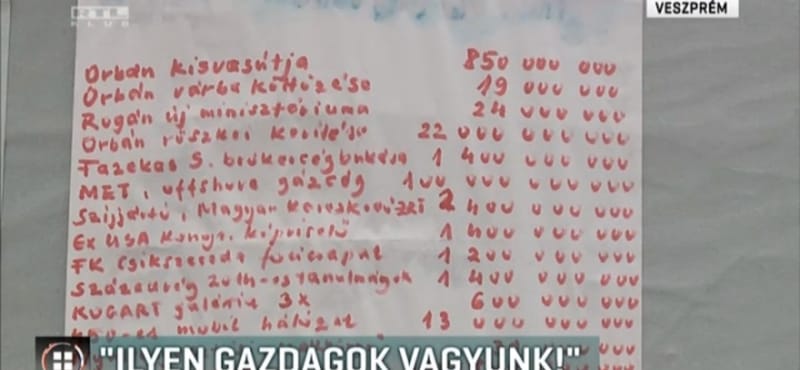 RTL
KLUB
VESZPRÉM
Orbán kisvasútja 850 000 000
Orbán várba költözése 19 000 000 000
Rogán új minisztóriuma 24 000 000
Orbán röszkei kerítése 22 000 000 000
Fazekas S. 1 400 000 000
MET, offshore gázcég 100 000 000 000
Szijjártó, Magyar 2 400 000 000
Ex USA kong. képviselő 1 400 000 000
FK Csíkszereda focicsapat 1 200 000 000
Századvég tanulmányok 1 400 000 000
KOGART galéria 3x 600 000 000
mobil hálózat 13 000 000 000
"ILYEN GAZDAGOK VAGYUNK!"